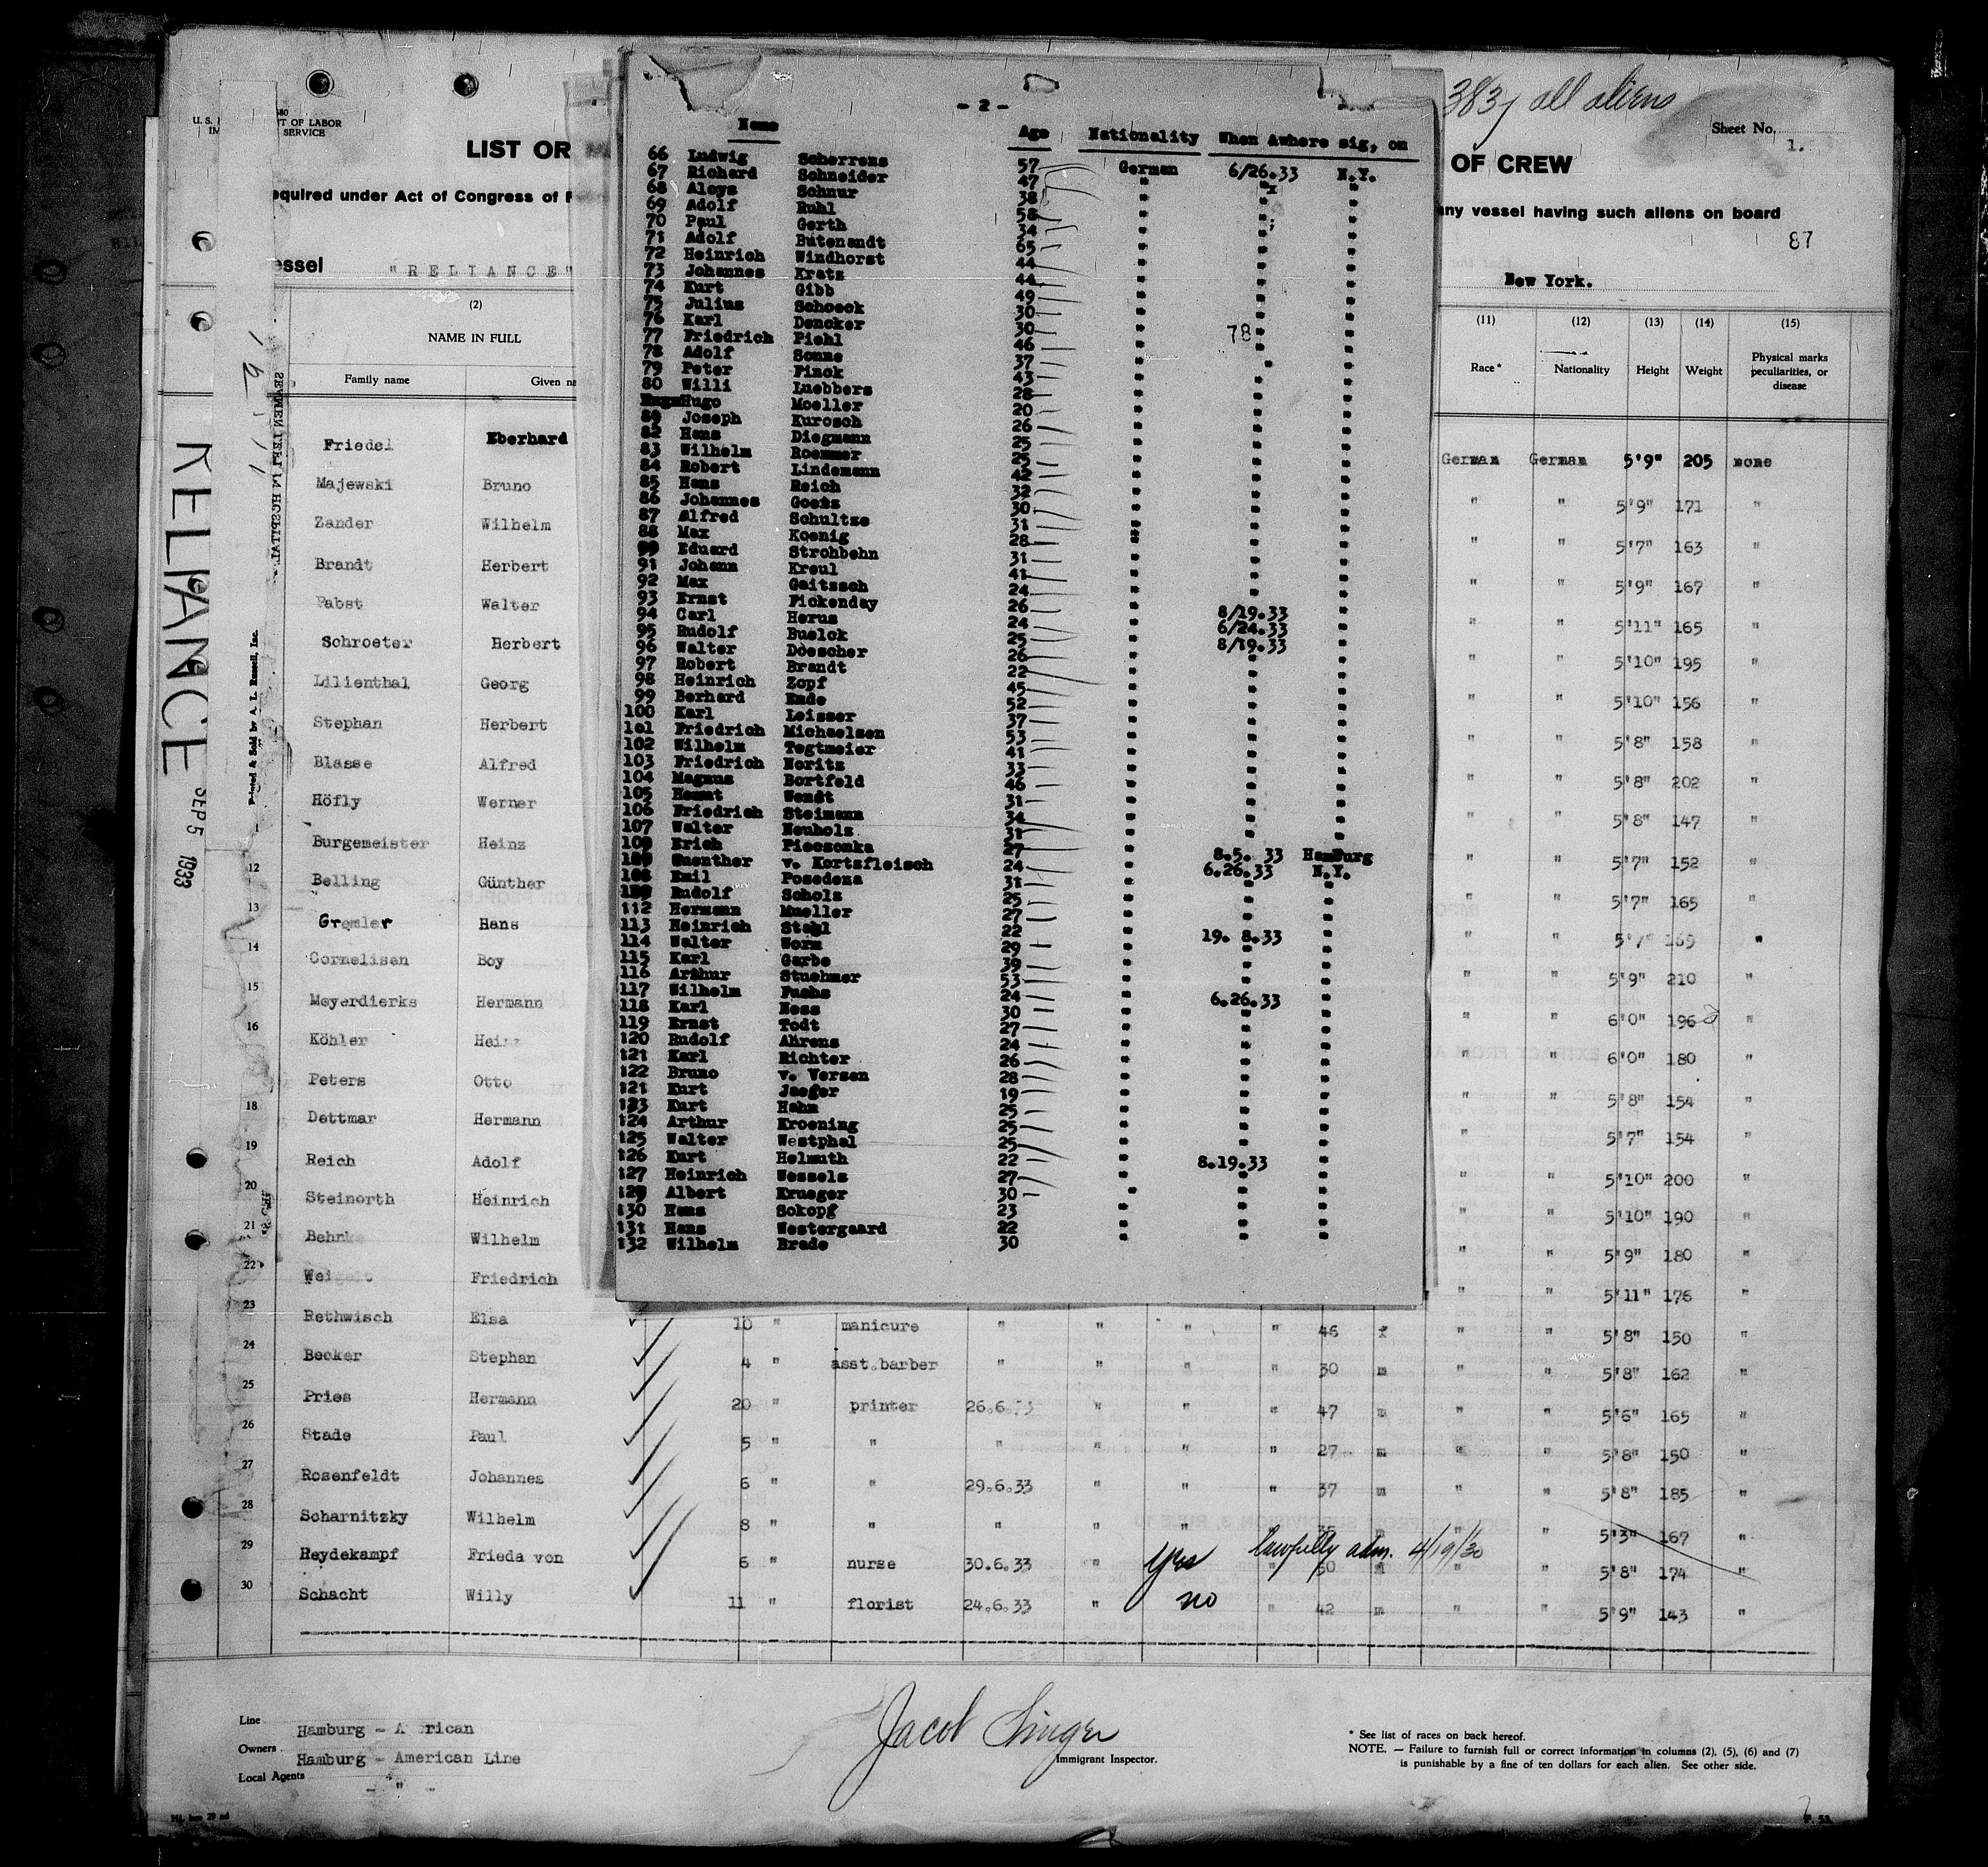 383 all aliens
Sheet No. 1.
U. S.
T OF LABOR
SERVICE
LIST OR
OF CREW
equired under Act of Congress of
any vessel having such aliens on board
87
essel "RELIANCE"
New York.
(2) (11) (12) (13) (14) (15)
NAME IN FULL
Family name Given
Race* Nationality Height Weight Physical marks peculiarities, or disease
RELIANCE SEP 5 1933
SEAMEN HOSPITAL
Printed & Sold by A. L. Russell, Inc.
- 2 -
Name Age Nationality When &where sig, on
66 Ludwig Scherrens 57 German 6/26.33 N.Y.
67 Richard Schneider 47 " " "
68 Aloys Schnur 38 " " "
69 Adolf Ruhl 58 " " "
70 Paul Gerth 34 " " "
71 Adolf Butenandt 65 " " "
72 Heinrich Windhorst 44 " " "
73 Johannes Kratz 44 " " "
74 Kurt Gibb 49 " " "
75 Julius Schoeck 30 " " "
76 Karl Dencker 30 " " "
77 Friedrich Piehl 46 " 78 " "
78 Adolf Sonne 37 " " "
79 Peter Finck 43 " " "
80 Willi Luebbers 28 " " "
Hugo Moeller 20 " " "
Joseph Kurosch 26 " " "
82 Hans Diegmann 25 " " "
83 Wilhelm Roemmer 25 " " "
84 Robert Lindemann 42 " " "
85 Hans Reich 32 " " "
86 Johannes Goetz 30 " " "
87 Alfred Schultze 31 " " "
88 Max Koenig 28 " " "
Eduard Strohbehn 31 " " "
91 Johann Kreul 41 " " "
92 Max Gaitzsch 24 " " "
93 Ernst Fickenday 26 " " "
94 Carl Herus 24 " 8/19.33 "
95 Rudolf Buelck 25 " 6/24.33 "
96 Walter Doescher 26 " 8/19.33 "
97 Robert Brandt 22 " " "
98 Heinrich Zopf 45 " " "
99 Berhard Ende 52 " " "
100 Karl Leisser 37 " " "
101 Friedrich Michaelsen 53 " " "
102 Wilhelm Tegtmeier 41 " " "
103 Friedrich Noritz 33 " " "
104 Magnus Bortfeld 46 " " "
105 Wendt 31 " " "
106 Friedrich Steimann 34 " " "
107 Walter Neuholz 31 " " "
Erich Piecsonka 27 " " "
Guenther v. Kortzfleisch 24 " 8.5. 33 Hamburg
Emil Posedena 31 " 6.26.33 N.Y.
Rudolf Scholz 25 " " "
112 Hermann Mueller 27 " " "
113 Heinrich Stahl 22 " " "
114 Walter Worm 29 " 19. 8.33 "
115 Karl Garbe 39 " " "
116 Arthur Stuehmer 53 " " "
117 Wilhelm Fuchs 24 " " "
118 Karl Hess 30 " 6.26.33 "
119 Ernst Todt 27 " " "
120 Rudolf Ahrens 24 " " "
121 Karl Richter 26 " " "
122 Bruno v. Versen 28 " " "
121 Kurt Jaeger 19 " " "
123 Kurt Hahn 25 " " "
124 Arthur Kroening 25 " " "
125 Walter Westphal 25 " " "
126 Kurt Helmuth 22 " 8.19.33 "
127 Heinrich Wessels 27 " " "
129 Albert Krueger 30 " " "
130 Hans Sokopf 23 " " "
131 Hans Westergaard 22 " " "
132 Wilhelm Brade 30 " " "
Friedel Eberhard German German 5'9" 205 none
Majewski Bruno " " 5'9" 171 "
Zander Wilhelm 5'7" 163 "
Brandt Herbert " " 5'9" 167 "
Pabst Walter " " 5'11" 165 "
Schroeter Herbert " " 5'10" 195 "
Lilienthal Georg " " 5'10" 156 "
Stephan Herbert " " 5'8" 158 "
Blasse Alfred " " 5'8" 202 "
Höfly Werner " " 5'8" 147 "
Burgemeister Heinz " " 5'7" 152 "
12 Belling Günther " " 5'7" 165 "
13 Gremler Hans " " 5'7" 165 "
14 Cornelisen Boy " " 5'9" 210 "
15 Meyerdierks Hermann " " 6'0" 196 "
16 Köhler Heinz " " 6'0" 180 "
Peters Otto " " 5'8" 154 "
18 Dettmar Hermann " " 5'7" 154 "
19 Reich Adolf " " 5'10" 200 "
20 Steinorth Heinrich " " 5'10" 190 "
21 Behnke Wilhelm " " 5'9" 180 "
22 Weigelt Friedrich " " 5'11" 176 "
23 Rethwisch Elsa 10 " manicure " " " " 46 f " " 5'8" 150 "
24 Becker Stephan 4 " asst.barber " " " " 30 m " " 5'8" 162 "
25 Pries Hermann 20 " printer 26.6.33 " " " 47 m " " 5'6" 165 "
26 Stade Paul 5 " " " " " " 27 m " " 5'8" 150 "
27 Rosenfeldt Johannes 6 " " 29.6.33 " " " 37 m " " 5'8" 185 "
28 Scharnitzky Wilhelm 8 " " " " " m " " 5'3" 167 "
29 Heydekampf Frieda von 6 " nurse 30.6.33 " yes lawfully adm. 4/19/30 50 f " " 5'8" 174 "
30 Schacht Willy 11 " florist 24.6.33 " no " 42 m " " 5'9" 143 "
Line Hamburg - A rican
Owners Hamburg - American Line
Local Agents - " -
Jacob Singer
Immigrant Inspector.
* See list of races on back hereof.
NOTE. — Failure to furnish full or correct information in columns (2), (5), (6) and (7)
is punishable by a fine of ten dollars for each alien. See other side.